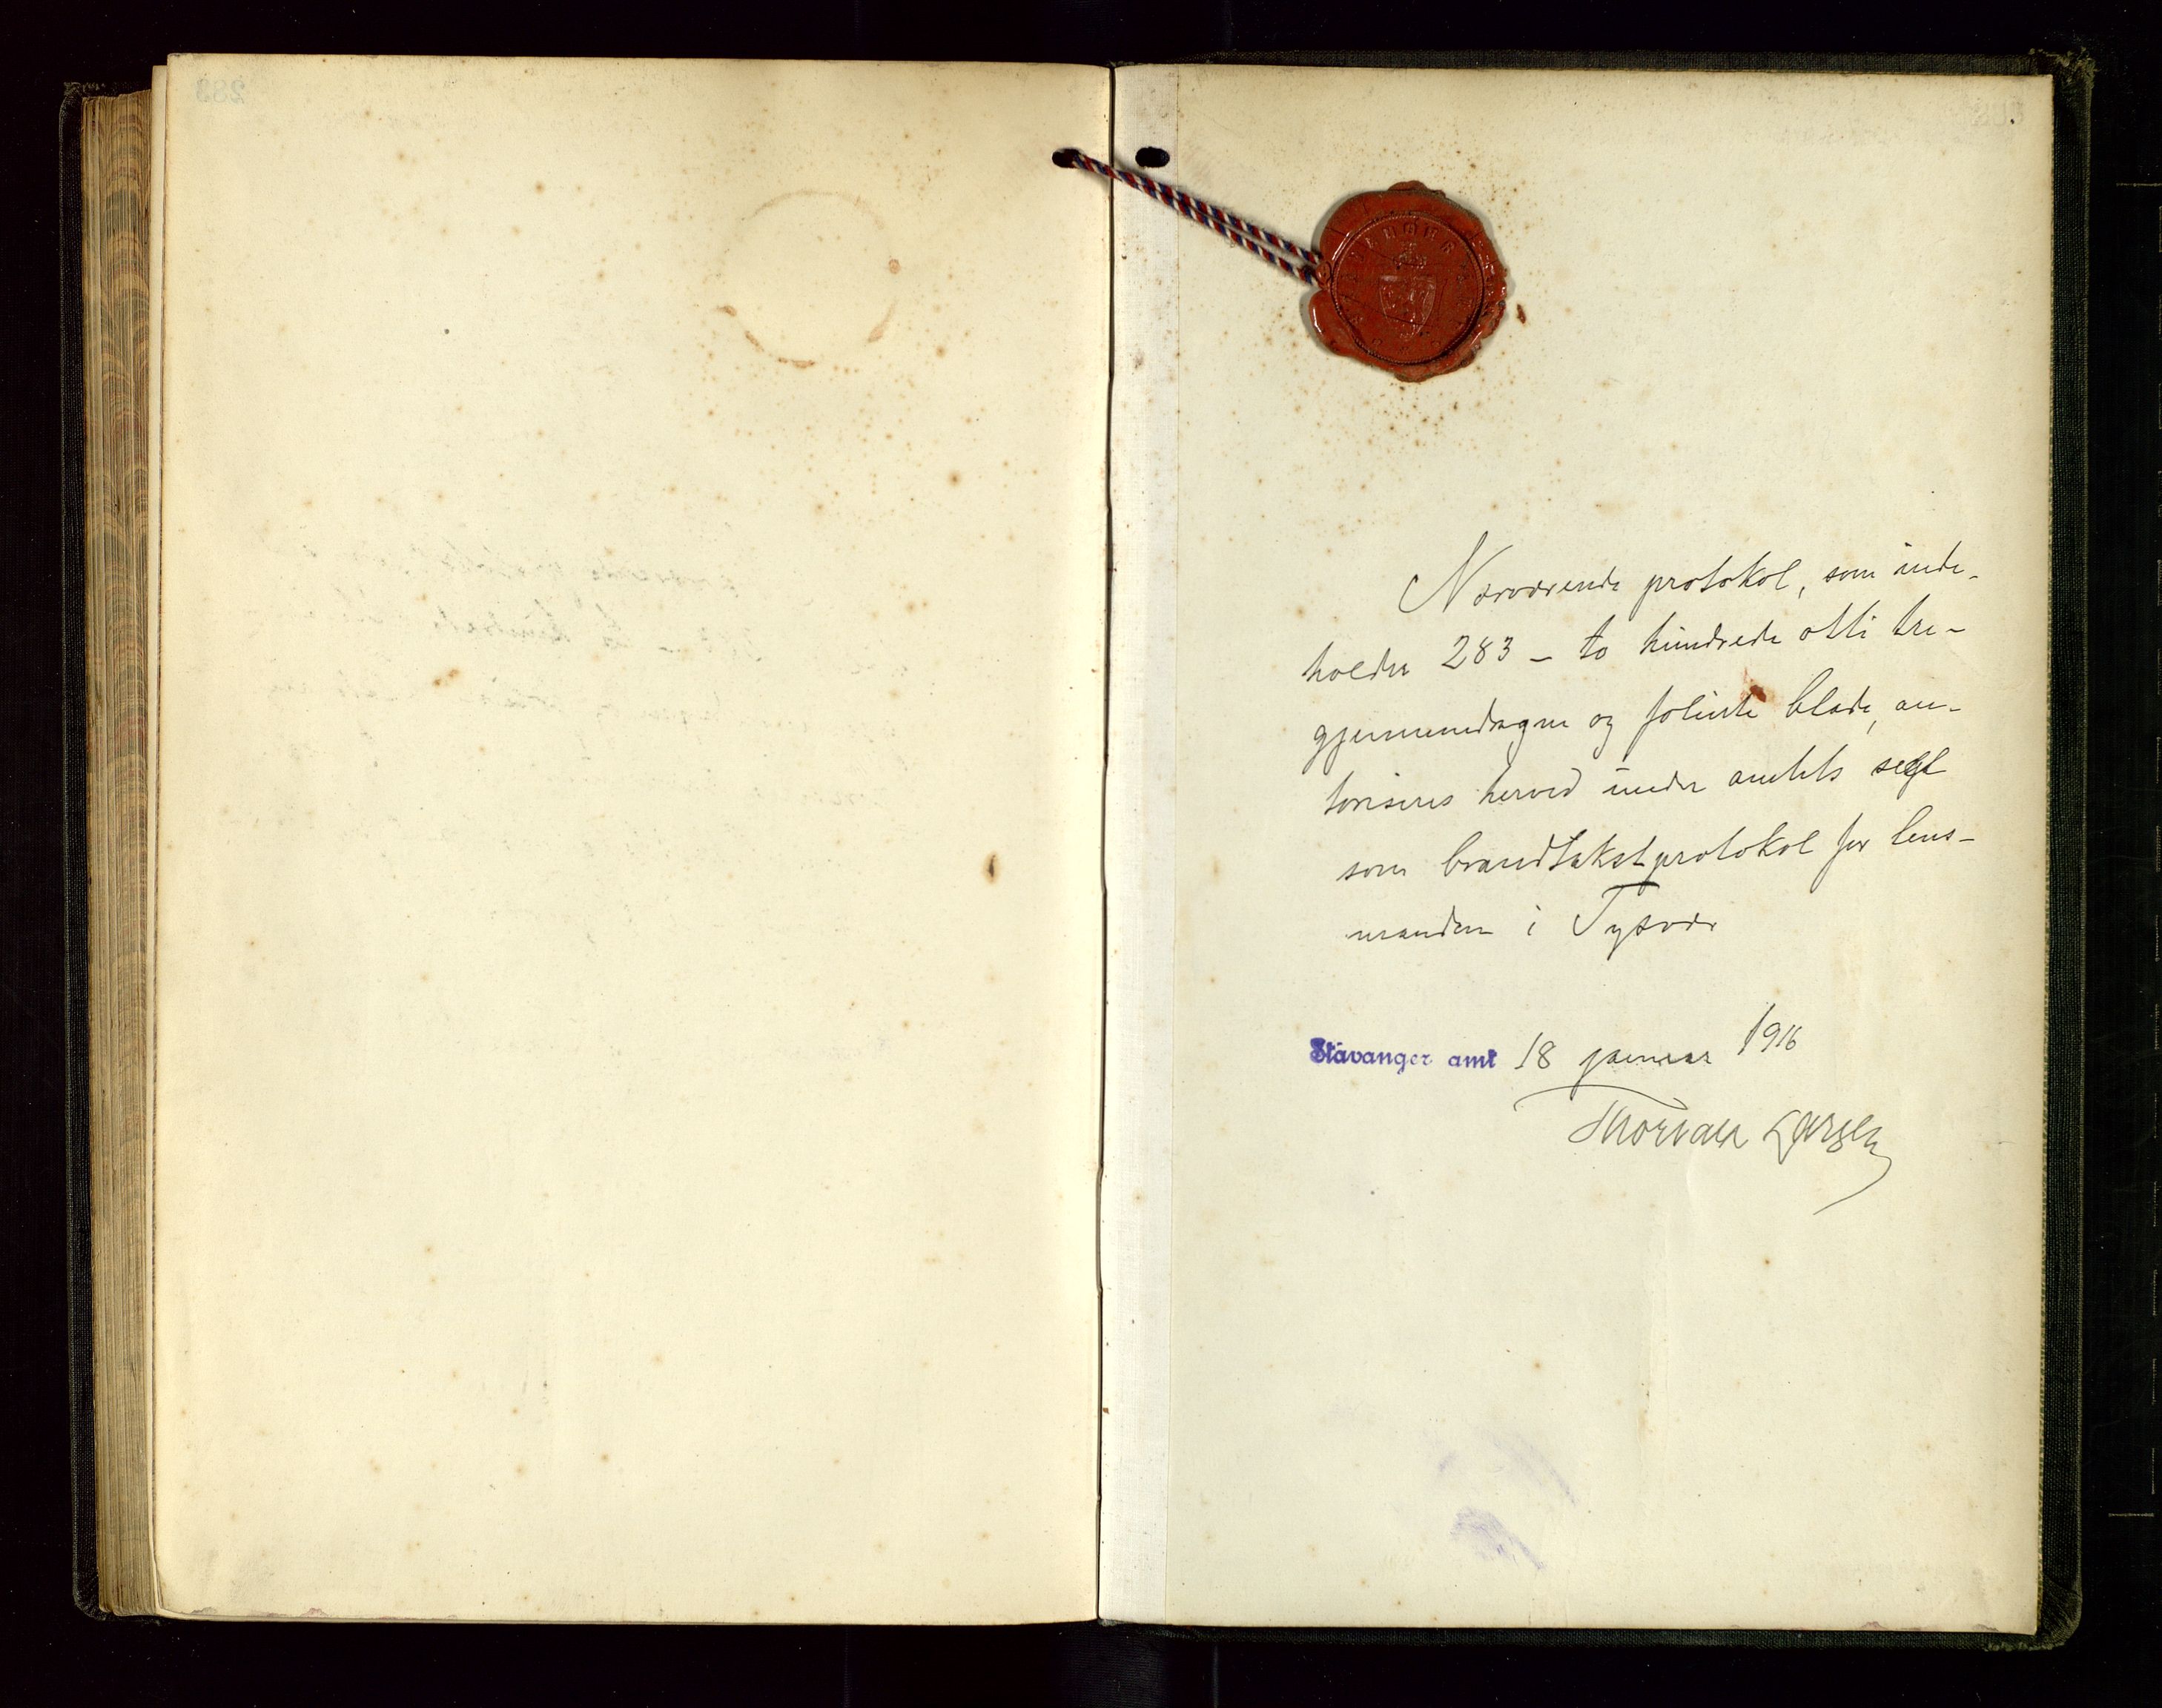 Nærværende protokol, som inde-
holder 283 - to hundrede otti tre -
gjennemdragne og folierte blade, au-
toriseres herved under amtets segl
som brandtakstprotokol for lens-
manden i Tysvær
Stavanger amt 18 januar 1916
Thorvald Larsen